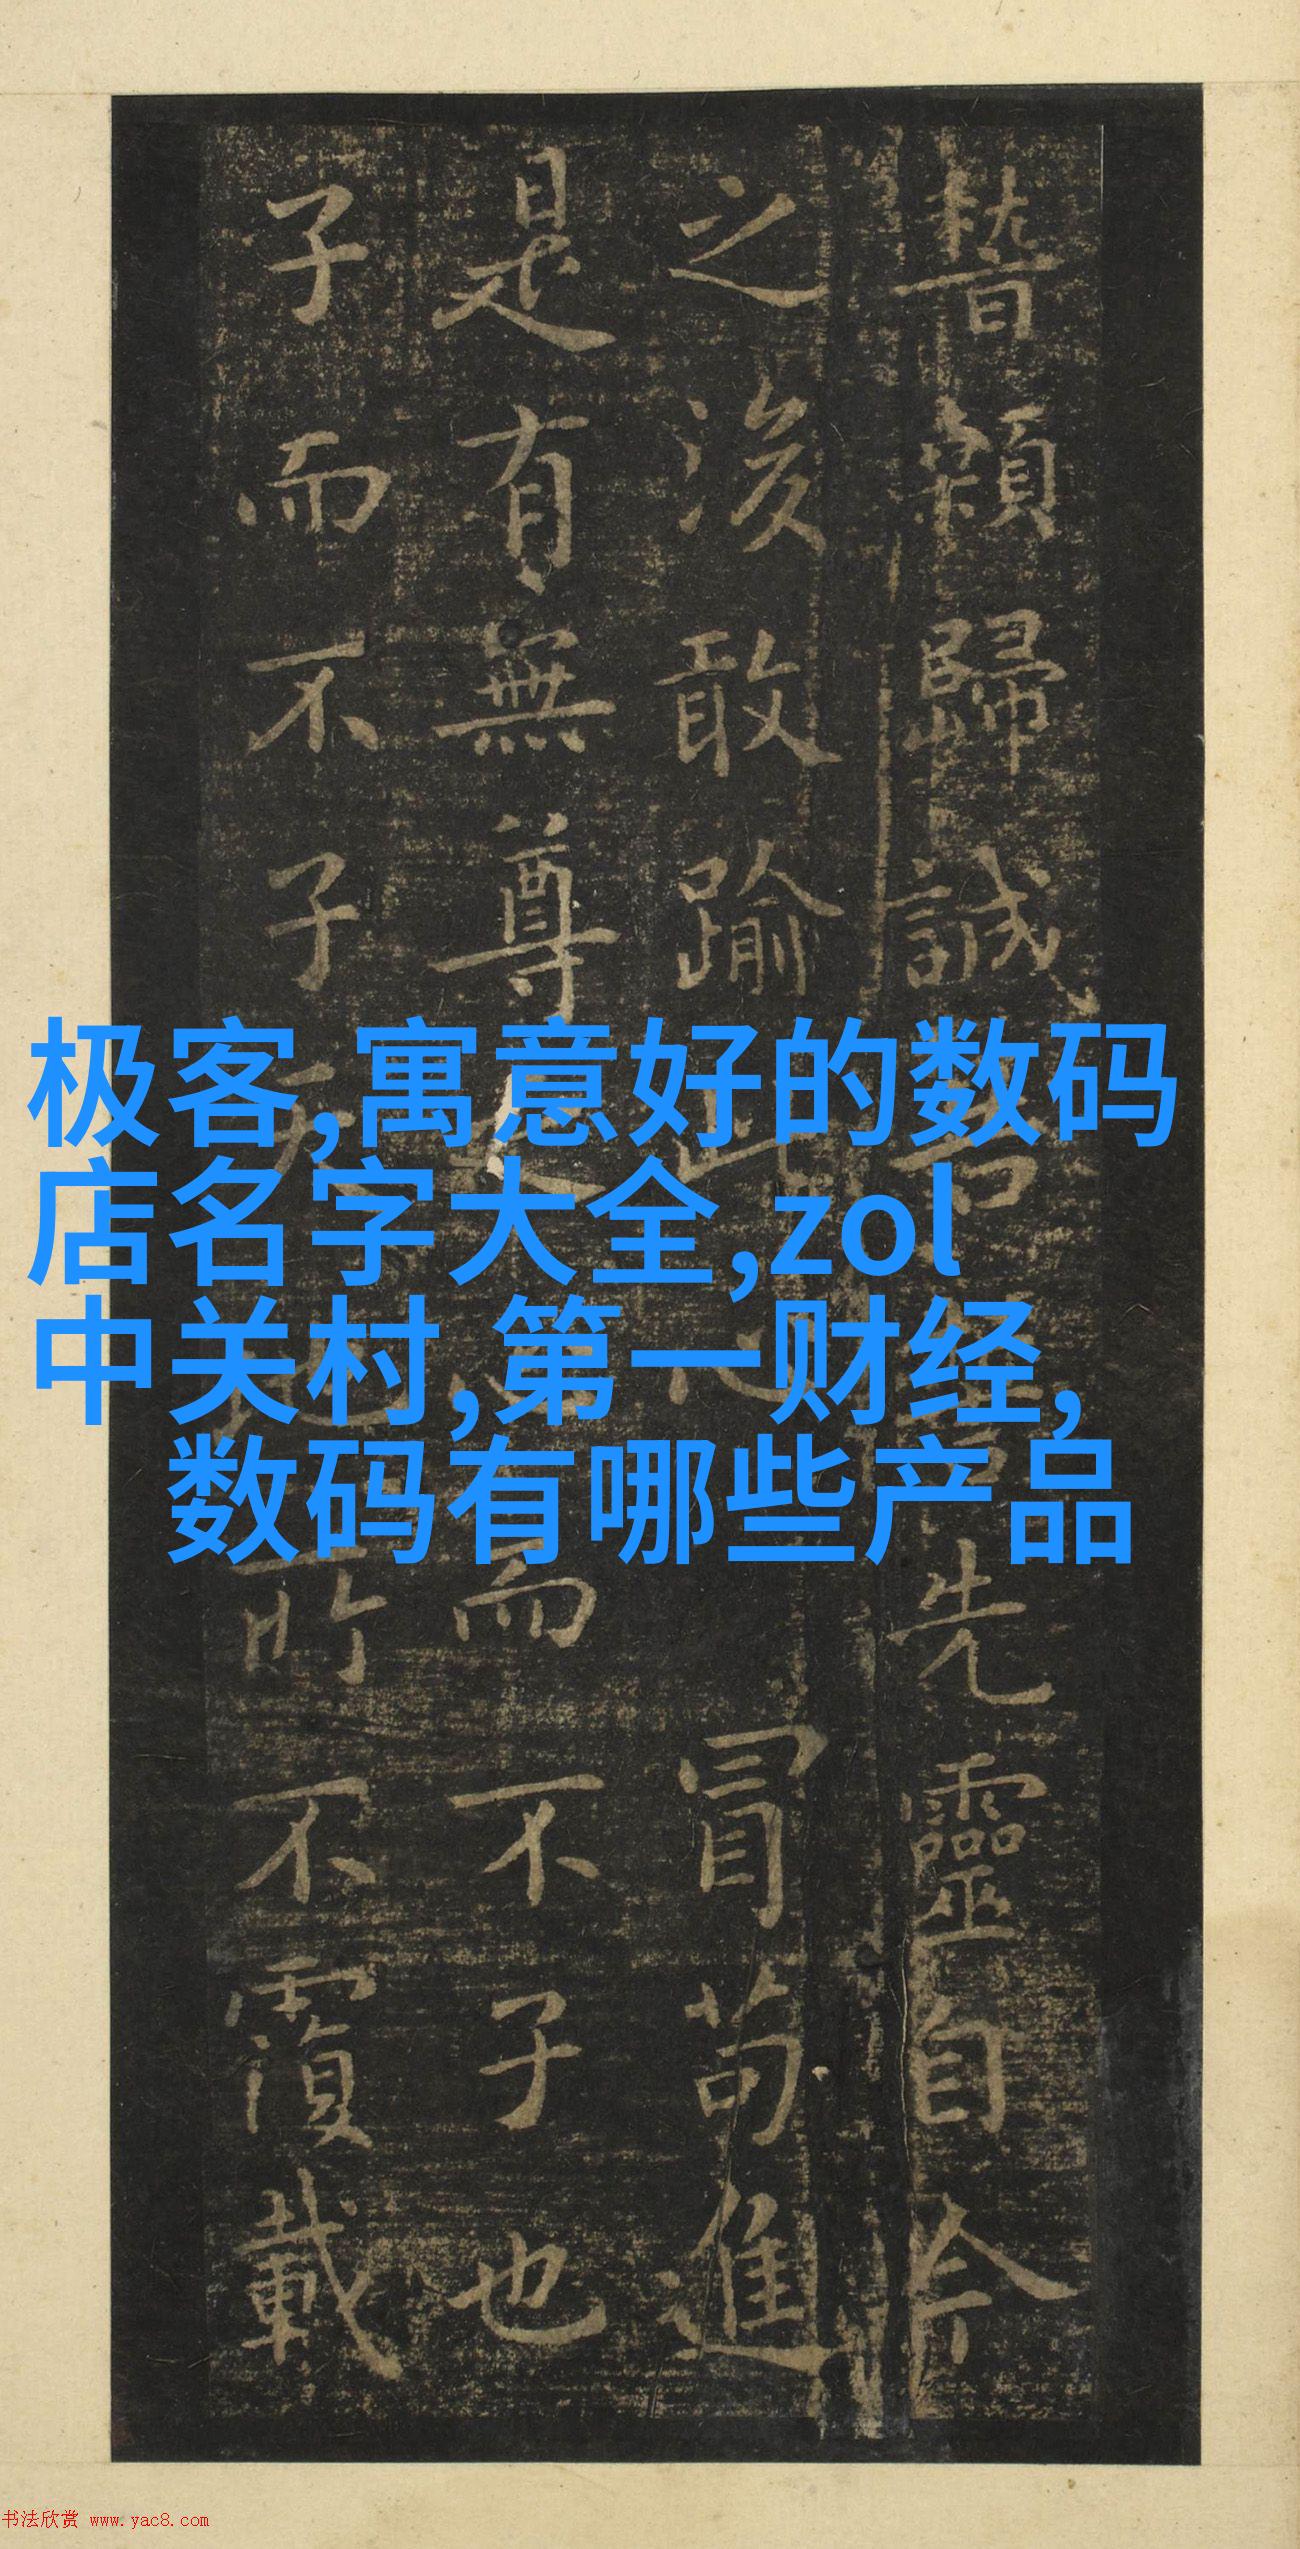 稽顙歸誠告先靈自今
之後敢踰此心冒苟進
是有無尊而不子也
子而不子所不覆載
极客,寓意好的数码
店名字大全,zol
中关村,第一财经,
数码有哪些产品
书法欣赏 www.yac8.com